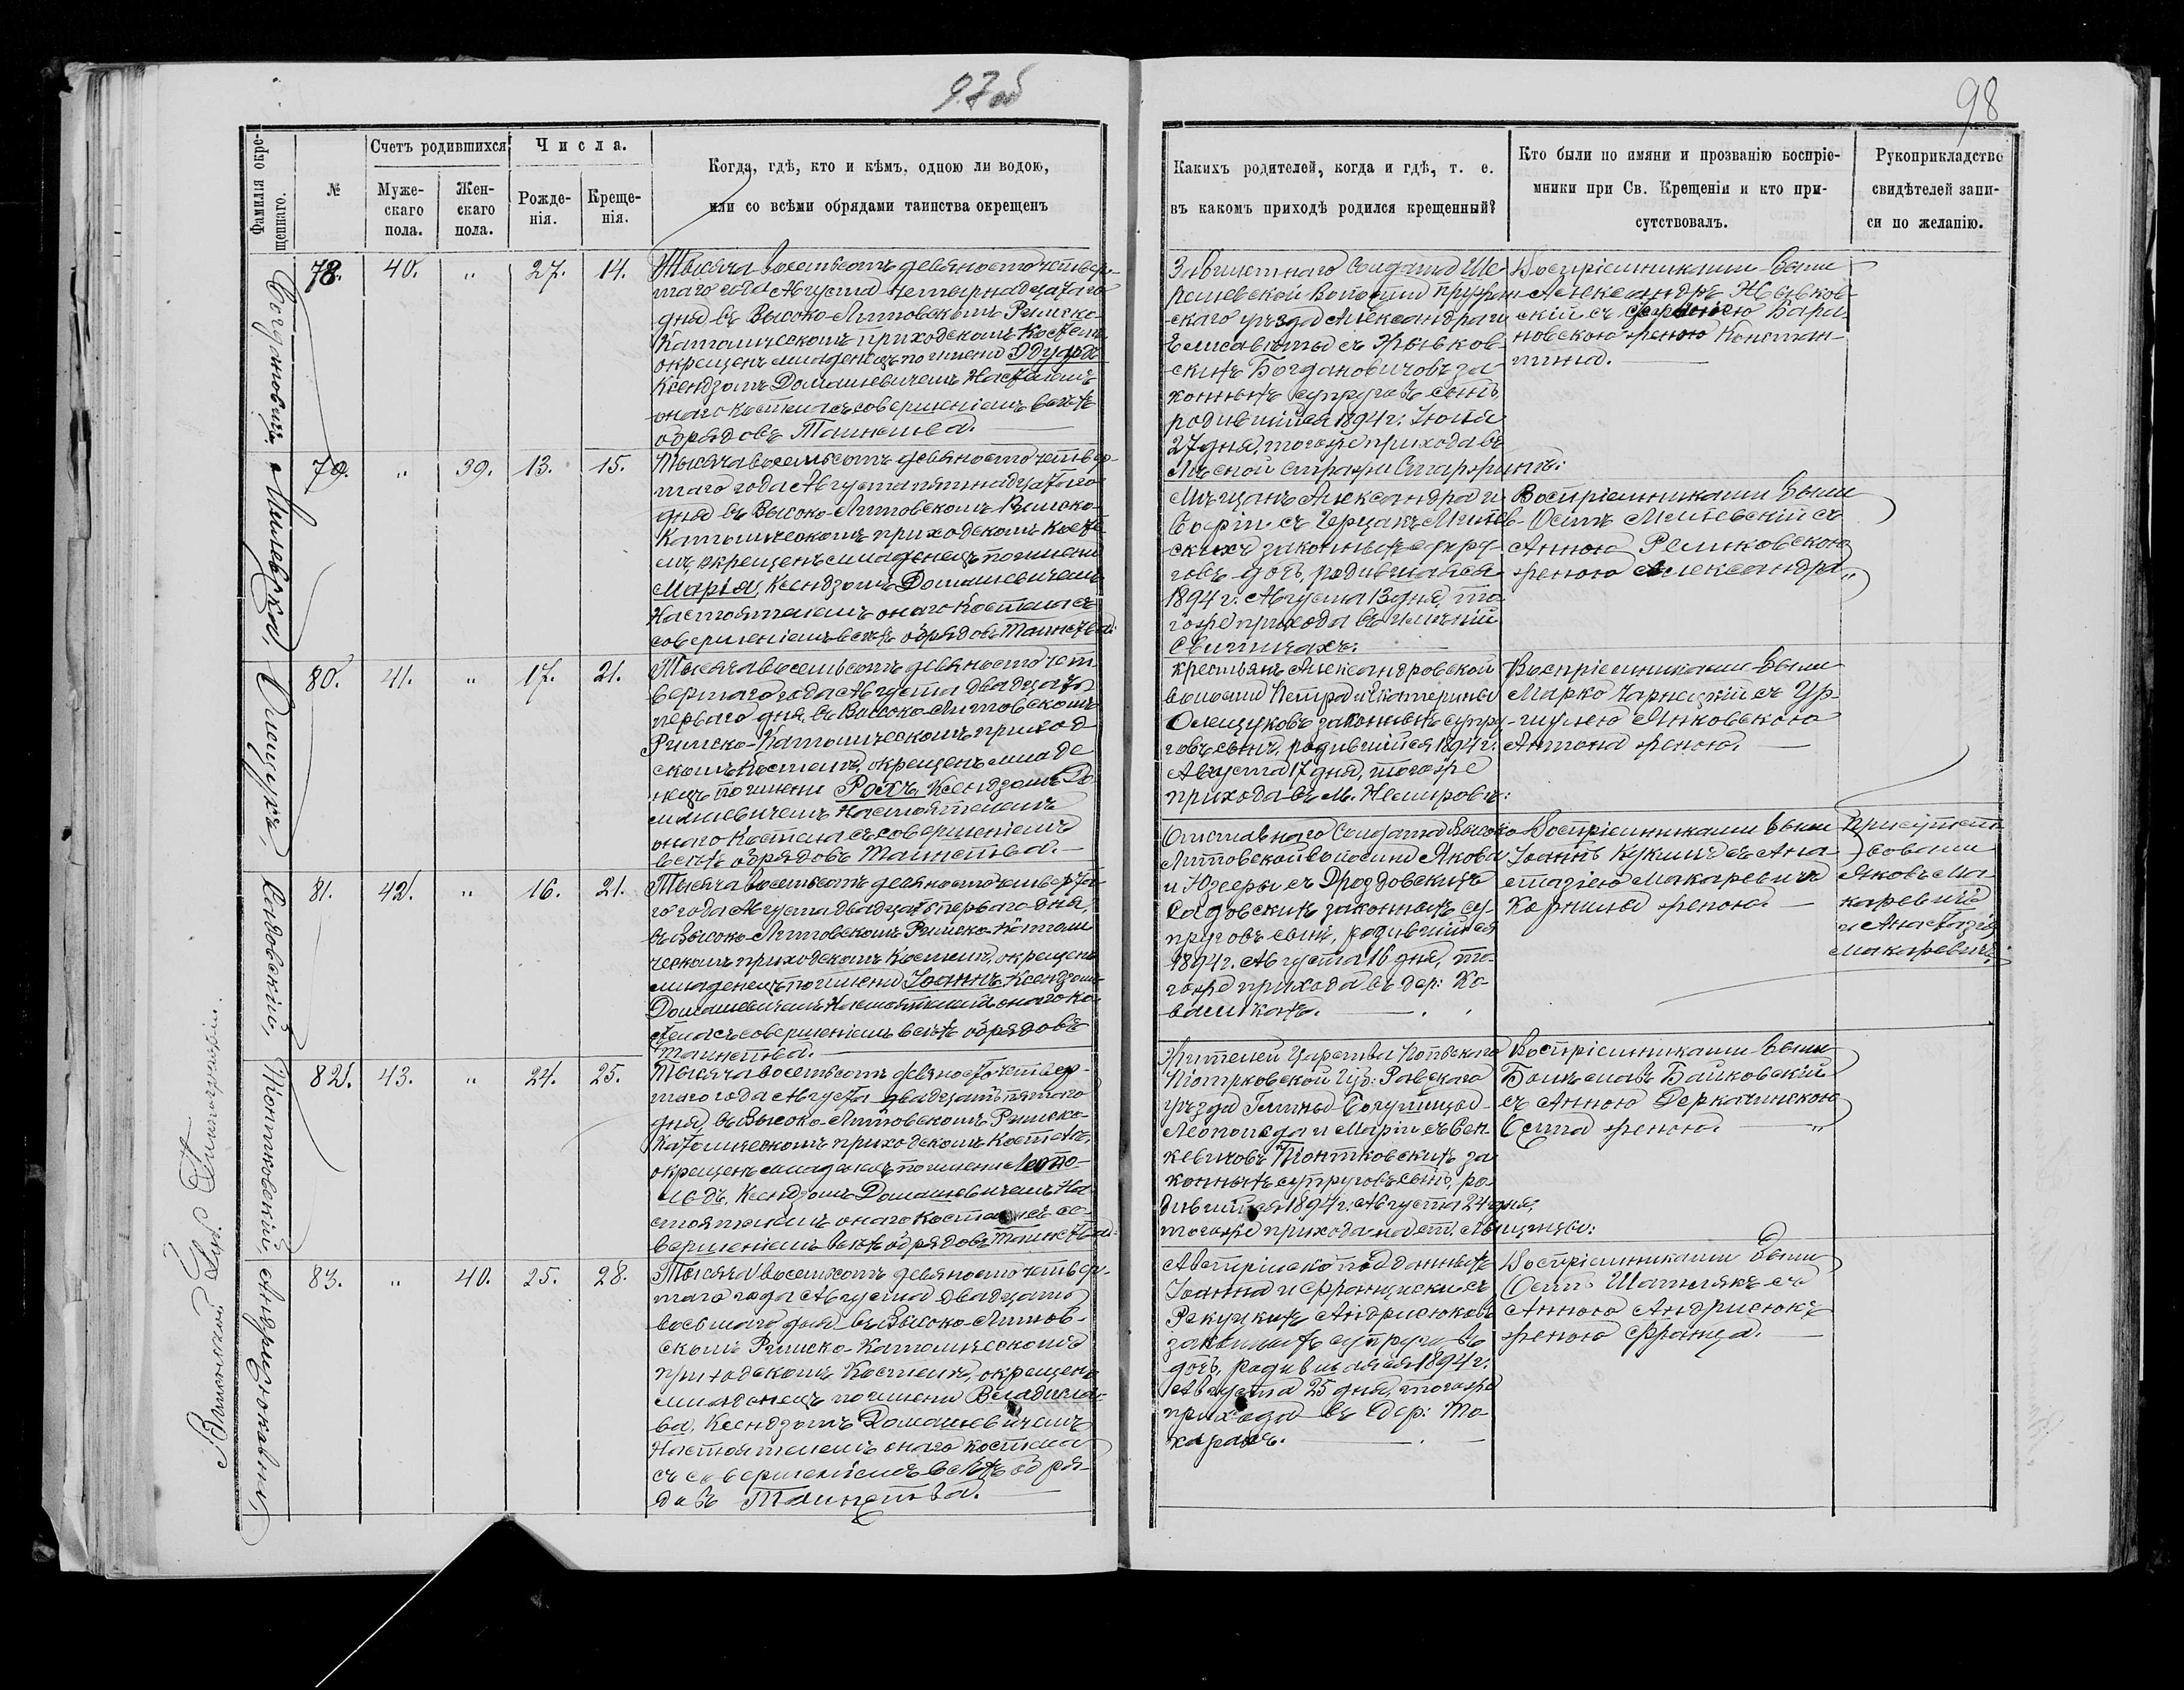 97об
98
Фамилія окре-
щеннаго.
№
Счетъ родившихся
Муже-
скаго
пола.
Жен-
скаго
пола.
Числа.
Рожде-
нія.
Креще-
нія.
Когда, гдѣ, кто и кѣмъ, одною ли водою,
или со всѣми обрядами таинства окрещенъ
Какихъ родителей, когда и гдѣ, т. е.
въ какомъ приходѣ родился крещенный?
Кто были по имяни и прозванію воспріе-
мники при Св. Крещеніи и кто при-
сутствовалъ.
Рукоприкладство
свидѣтелей запи-
си по желанію.
Богдановичъ
78. 40. " 27. 14.
Тысяча восемьсотъ девяносто четвер-
таго года Августа четырнадцатаго
дня въ Высоко-Литовскомъ Римско-
Католическомъ приходскомъ Костелѣ
окрещенъ младенецъ по имени Эдуардъ
Ксендзомъ Домашевичемъ Настоятелемъ
онаго Костела съ совершеніемъ всѣхъ
обрядовъ Таинства.
Запаснаго Солдата Ше-
решевской Волости Пружан-
скаго уѣзда Александра и
Елисаветы съ
скихъ Богдановичовъ за-
конныхъ супруговъ сынъ,
родившійся 1894 г. Іюля
27 дня, тогоже прихода въ
Лѣсной стражи
Воспріемниками были
Александръ
скій съ Бара-
новскою женою Констан-
тина.
Милевская
79. " 39. 13. 15.
Тысяча восемьсотъ девяносто четвер-
таго года Августа пятнадцатаго
дня въ Высоко-Литовскомъ Римско-
Католическомъ приходскомъ Косте-
лѣ, окрещенъ младенецъ по имени
Марья, Ксендзомъ Домашевичемъ
Настоятелемъ онаго Костела съ
совершеніемъ всѣхъ обрядовъ Таинства.
Мѣщанъ Александра и
Софіи съ Милев-
скихъ законныхъ супру-
говъ дочь, родившаяся
1894 г. Августа 13 дня, то-
гоже прихода въ имѣніи
Воспріемниками были
Осипъ Милевскій съ
Анною
женою Александра "
Олещукъ,
80. 41. " 17. 21.
Тысяча восемьсотъ девяносто чет-
вертаго года Августа двадцать
перваго дня, въ Высоко-Литовскомъ
Римско-Католическомъ приход-
скомъ Костелѣ, окрещенъ младе-
нецъ по имени Рохъ, Ксендзомъ До-
машевичемъ Настоятелемъ
онаго Костела съ совершеніемъ
всѣхъ обрядовъ Таинства.
Крестьянъ Александровской
волости Петра и Екатерины
Олещуковъ законныхъ супру-
говъ сынъ, родившійся 1894 г.
Августа 17 дня, тогоже
прихода въ м. Немировѣ.
Воспріемниками были
Марко Чарнецкій съ Ур-
шулею Янковскою
Антона женою.
Садовскій,
81. 42. " 16. 21.
Тысяча восемьсотъ девяносто четверта-
го года Августа двадцать перваго дня,
въ Высоко-Литовскомъ Римско-Католи-
ческомъ приходскомъ Костелѣ, окрещенъ
младенецъ по имени Іоаннъ, Ксендзомъ
Домашевичемъ Настоятелемъ онаго Ко-
стела съ совершеніемъ всѣхъ обрядовъ
Таинства.
Отставнаго Солдата Высоко-
Литовской волости Якова
и Юзефы съ Дроздовскихъ
Садовскихъ законныхъ су-
пруговъ сынъ, родившійся
1894 г. Августа 16 дня, то-
гоже прихода въ дер: Ко-
валикахъ.
Воспріемниками были
Іоаннъ съ Ана-
стазіею Макаревичъ
женою.
Присутст-
вовали
Яковъ Ма-
каревичъ
и Анастазія
Макаревичъ.
Піонтковскій
82. 43. " 24. 25.
Тысяча восемьсотъ девяносто четвер-
таго года Августа двадцать пятаго
дня, въ Высоко-Литовскомъ Римско-
Католическомъ приходскомъ Костелѣ,
окрещенъ младенецъ по имени Леопо-
льдъ, Ксендзомъ Домашевичемъ На-
стоятелемъ онаго Костела съ со-
вершеніемъ всѣхъ обрядовъ Таинства.
Жителей Царства Польскаго
Піотрковской Губ: Равскаго
уѣзда Гмины
Леопольда и Маріи съ Вен-
кевичовъ Піонтковскихъ за-
конныхъ супруговъ сынъ, ро-
дившійся 1894 г. Августа 24 дня,
тогоже прихода на ст.
Воспріемниками были
Болеславъ Байковскій
съ Анною Деркачинскою
Осипа женою. "
Андрисюковна,
83. " 40. 25. 28.
Тысяча восемьсотъ девяносто четвер-
таго года Августа двадцать
восьмаго дня въ Высоко-Литов-
скомъ Римско-Католическомъ
приходскомъ Костелѣ, окрещенъ
младенецъ по имени Владисла-
ва, Ксендзомъ Домашевичемъ
Настоятелемъ онаго Костела
съ совершеніемъ всѣхъ обря-
довъ Таинства.
Австрійско подданныхъ
Іоанна и Францишки съ
Андрисюковъ
законныхъ супруговъ
дочь, родившаяся 1894 г.
Августа 25 дня, тогоже
прихода въ дер: То-
карахъ.
Воспріемниками были
Осипъ съ
Анною Андрисюкъ
женою Франца.